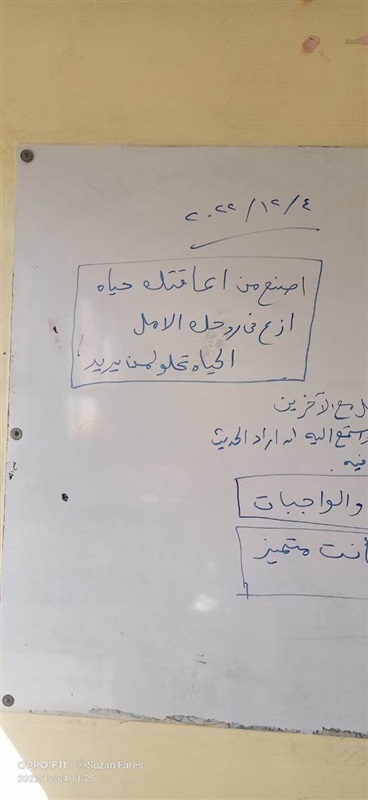 ٢٠٢٢/١٢/٤
اصنع من اعاقتك حياه
ازرع فى روحك الامل
الحياه تحلو لمن يريد
مع الآخرين
استمع اليه اذا اراد الحديث
فيه
والواجبات
أنت متميز
OPPO F11 · ©Suzan Fares
2022/12/04 11:25